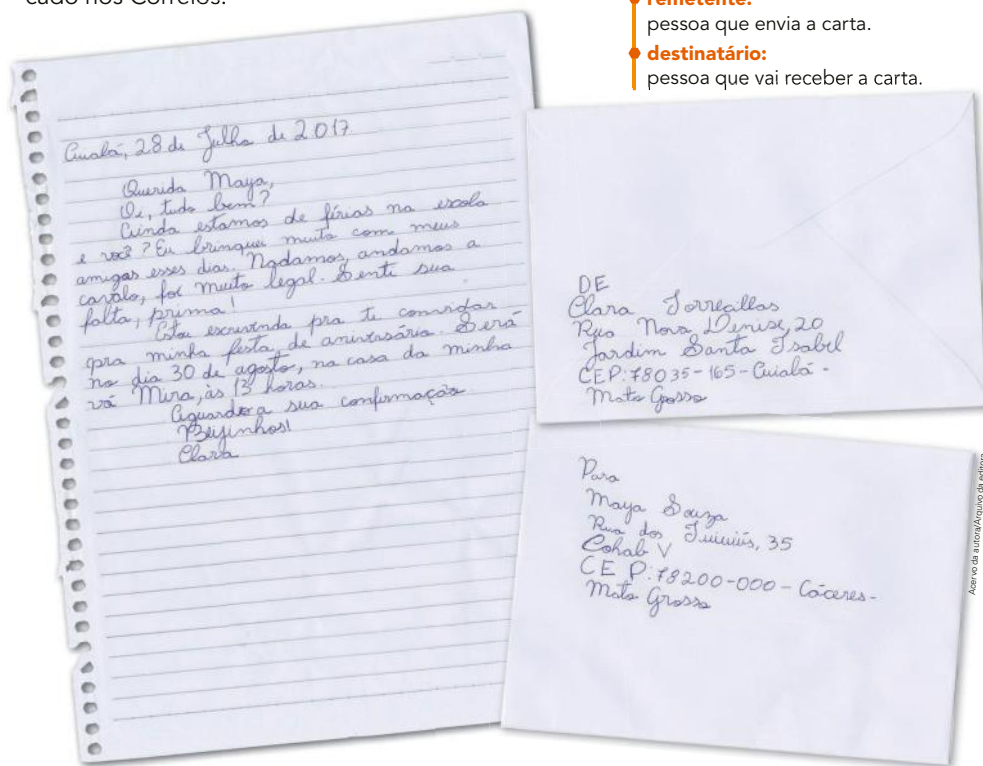 cado nos Correios.
remetente:
pessoa que envia a carta.
destinatário:
pessoa que vai receber a carta.
Cuiabá, 28 de Julho de 2017
Querida Maya,
Oi, tudo bem?
Ainda estamos de férias na escola
e você? Eu brinquei muito com meus
amigos esses dias. Nadamos, andamos a
cavalo, foi muito legal. Senti sua
falta, prima!
Estou escrevendo pra te convidar
pra minha festa de aniversário. Será
no dia 30 de agosto, na casa da minha
vó Mira, às 13 horas.
Aguardo a sua confirmação.
Beijinhos!
Clara
DE
Clara Torrecillas
Rua Nova Denise, 20
Jardim Santa Isabel
CEP: 78035-165 - Cuiabá -
Mato Grosso
Para
Maya Souza
Rua dos Tuiuiús, 35
Cohab V
CEP: 78200-000 - Cáceres -
Mato Grosso
Acervo da autora/Arquivo da editora